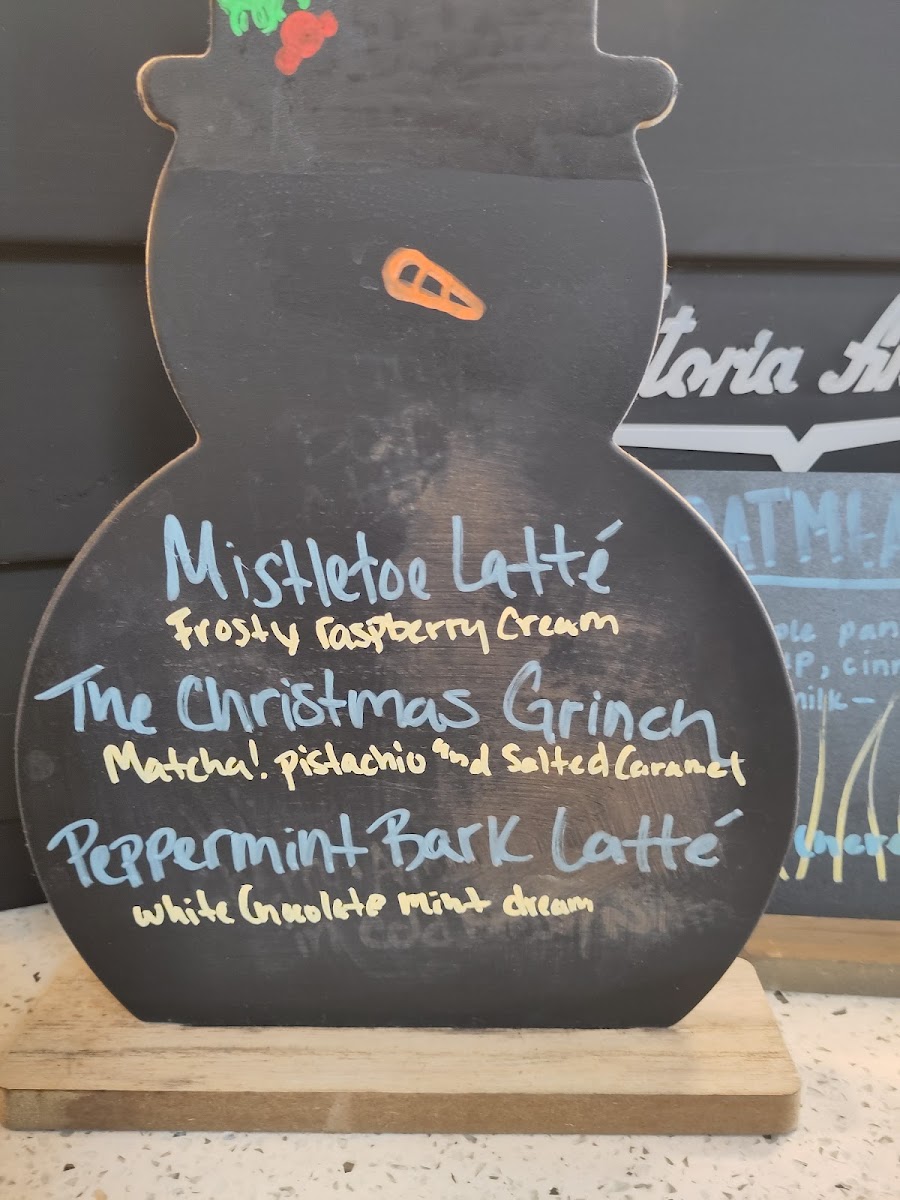 Mistletoe Latté
Frosty raspberry Cream
The Christmas Grinch
Matcha! pistachio and Salted Caramel
Peppermint Bark Latté
white Chocolate mint dream
toria
OATMEA
ple pan
cinn
milk-